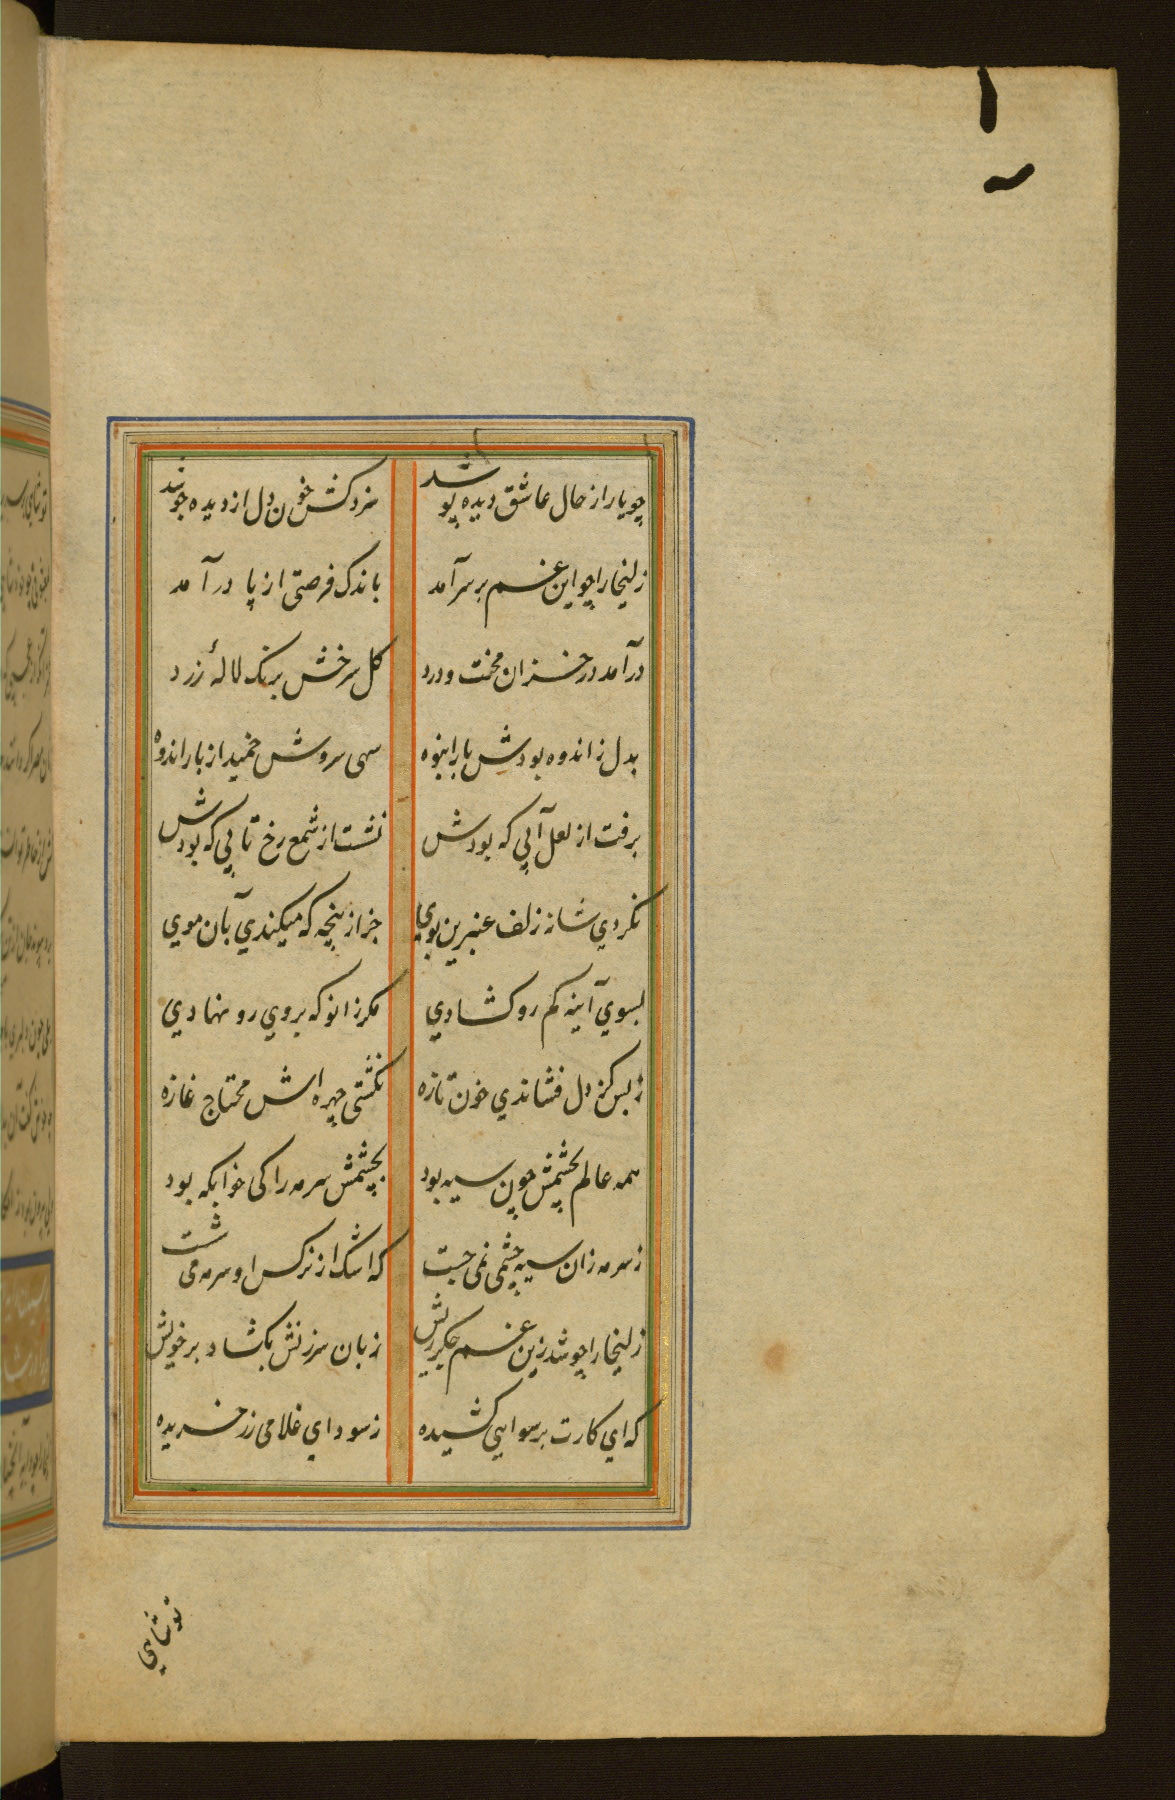 چو یار از حال عاشق دیده پوشد سزد کش خون دل از دیده جوشد
زلیخا را چو این غم بر سر آمد باندک فرصتی از پا در آمد
در آمد در خزان محنت و درد کل سرخش برنک لالهٔ زرد
بدل ز اندوه بودش بار انبوه سهی سروش خمید از بار اندوه
برفت از لعل آبی که بودش نشست از شمع رخ تابی که بودش
نکردی شانه زلف عنبرین بوی جز از پنجه که میکندی بآن موی
بسوی آینه کم رو کشادی مکر زانو که بروی رو نهادی
ز بس کز دل فشاندی خون تازه نکشتی چهره اش محتاج غازه
همه عالم بچشمش چون سیه بود بچشمش سرمه را کی خوابکه بود
ز سرمه زان سیه چشمی نمی جست که اشک از نرکس او سرمه می شست
زلیخا را چو شد زین غم جکر ریش زبان سرزنش بکشاد بر خویش
که ای کارت برسوایی کشیده ز سودای غلامی زر خریده
تو شاهی